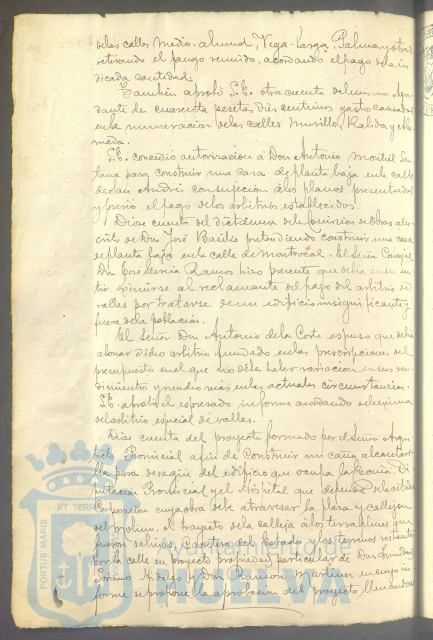 de las calles Medio-almud, Vega-Larga, Palma y otras
retirando el fango reunido, acordando el pago de la in
dicada cantidad.
Tambien aprobó S.E. otra cuenta del mismo Ayu
dante de cuarenta pesetas, diez centimos gasto causado
en la numeracion de las calles Murillo, Rabida y
meda.
S.E. concedio autorizacion á Don Antonio Montiel San
tana para construir una casa de planta baja en la calle
de San Andrés con sujecion á los planos presentados
y previo el pago de los arbitrios establecidos.
Diose cuenta del dictamen de la Comision de Obras al es
crito de Don José Basilio pretendiendo construir una casa
de planta baja en la calle de Montrocal. El Señor Concejal
Don José Garcia Ramos hizo presente que debia en su sen
tir eximirse al reclamante del pago del arbitrio de
vallas por tratarse de un edificio insignificante y
fuera de la poblacion.
El Señor Don Antonio de la Corte expuso que debia
abonar dicho arbitrio fundado en las prescripciones del
presupuesto en el que no debe haber variacion en sus ren
dimientos y mucho más en las actuales circunstancias.
S.E. aprobó el espresado informe acordando se le exima
del arbitrio especial de valles.
Diose cuenta del proyecto formado por el Señor Arqui
tecto Provincial afin de construir un caño alcantari
lla para desagüe del edificio que ocupa la Excma. Di
putacion Provincial y el Hospital que depende de la citada
Corporacion cuya obra debe atravesar la plaza y callejon
del molino, el trayecto de la calleja á los terraplenes que
fueron salinas, Carretera del Estado y los terrenos restantes
por la calle en proyecto propiedad particular de Don Fernando
Soriano Hidalgo y Don Ramon Martinez en cuyo in
forme se propone la aprobacion del proyecto llenandose
Ayuntamiento de
HUELVA
PORTUS MARIS ET TERRAE